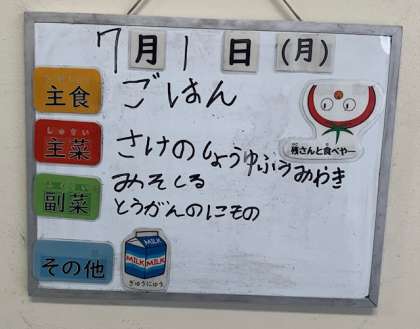 7月1日(月)
主食 ごはん
しゅさい
主菜 さけのしょうゆふうみやき
副菜 みそしる
とうがんのにもの
残さんと食べやー
その他
MILK
MILK MILK
ぎゅうにゅう